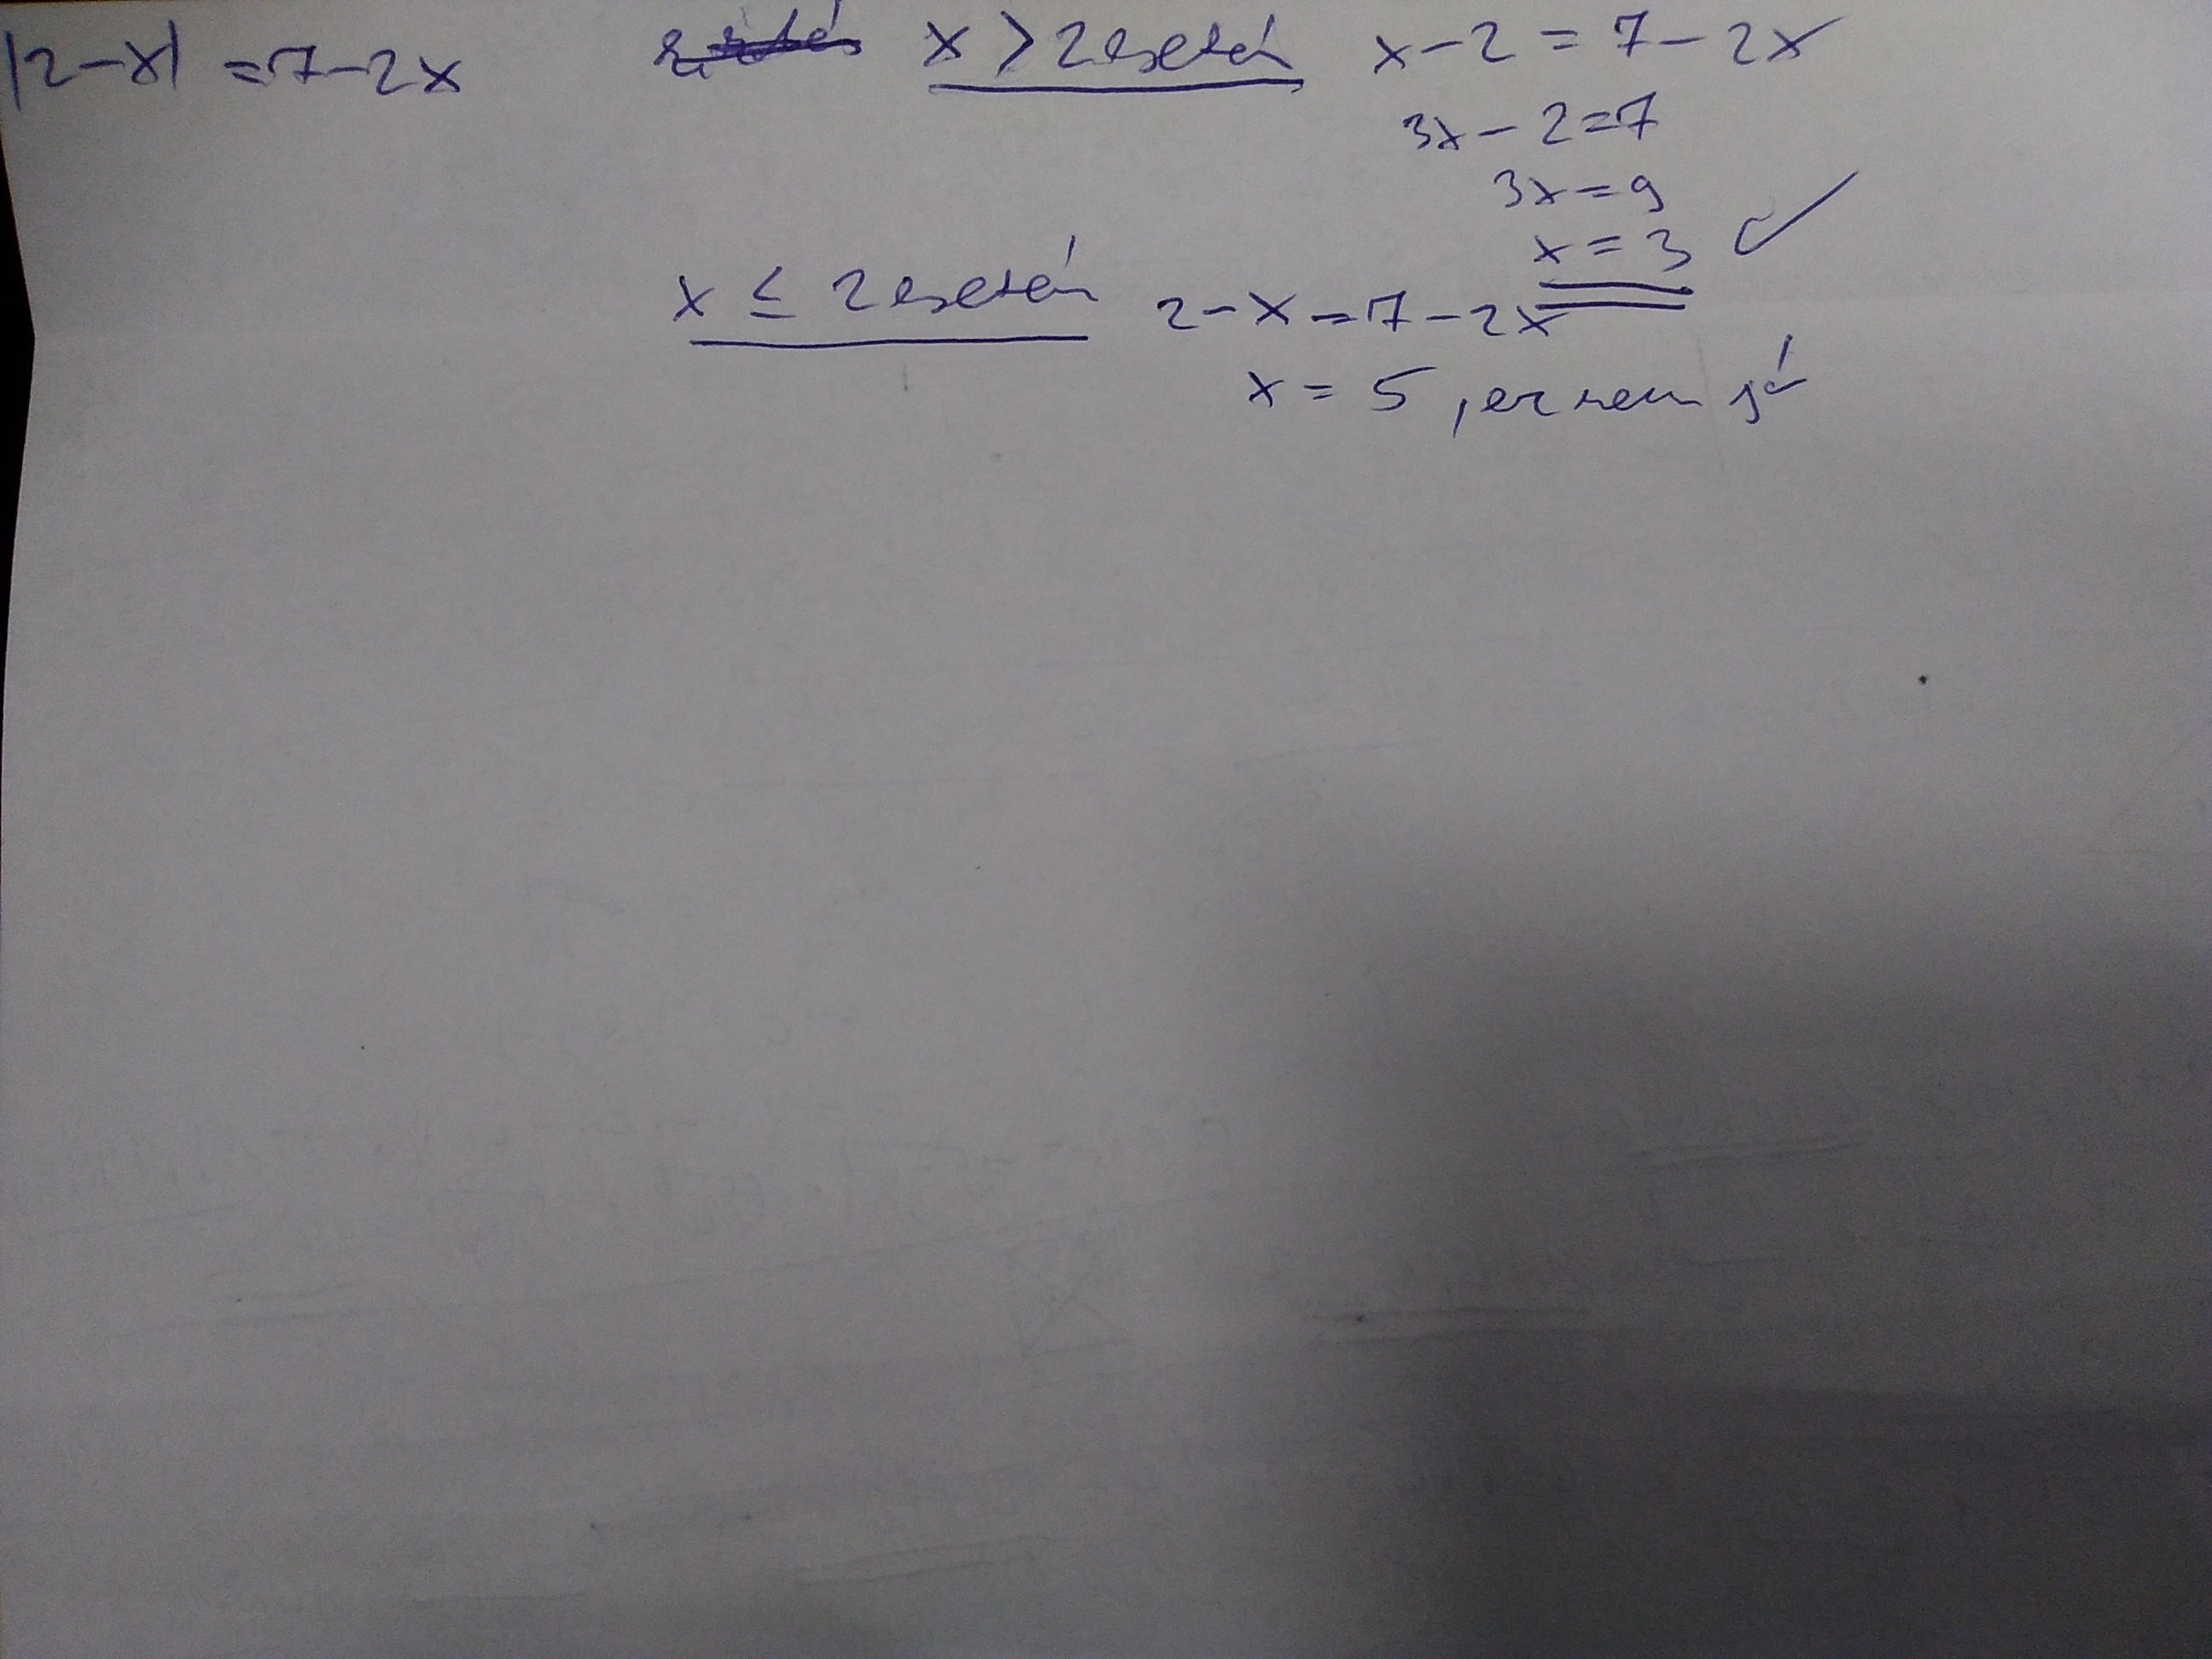 |2-x| = 7-2x x > 2 esetén x-2 = 7-2x
3x-2=7
3x=9
x=3 ✓
x ≤ 2 esetén 2-x=7-2x
x = 5, ez nem jó